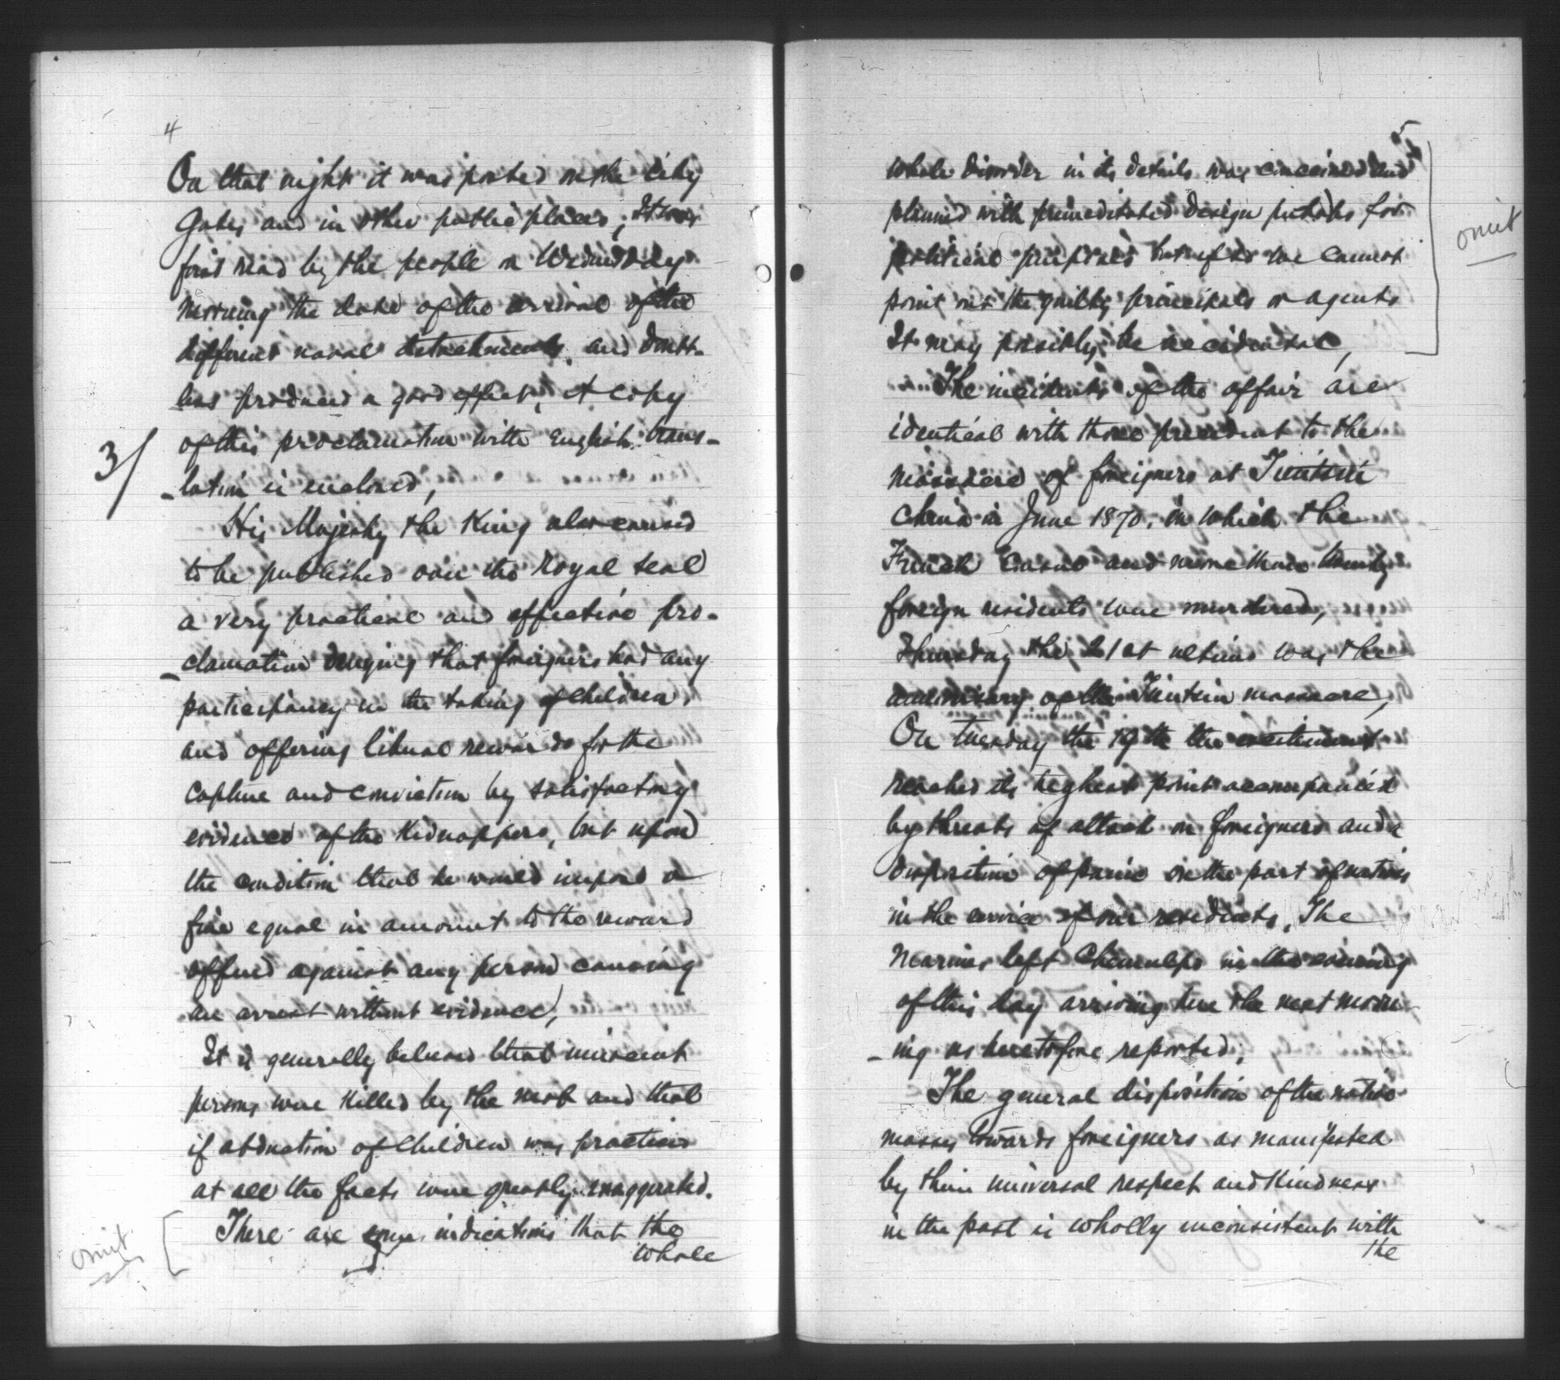 4
On that night it was posted on the City
Gates and in other public places, It was
first read by the people on Wednesday
morning the date of the arrival of the
different naval detachments, and doubt-
less produced a good effect, A copy
3/
of this proclamation with English trans-
-lation is enclosed,
His Majesty the King also caused
to be published over the Royal seal
a very practical and effective pro-
-clamation denying that foreigners had any
participancy in the taking of children,
and offering liberal rewards for the
capture and conviction by satisfactory
evidence of the Kidnappers, but upon
the condition that he would impose a
fine equal in amount to the reward
offered against any person causing
an arrest without evidence,
It is generally believed that innocent
persons were killed by the mob and that
if abduction of children was practiced
at all the facts were greatly exaggerated.
omit
[ There are some indications that the
whole
5
whole disorder in its details was conceived and
planned with premeditated design perhaps for
political purposes but if so we cannot
omit
point out the guilty principals or agents
It may possibly be accidental, ]
The incidents of the affair are
identical with those precedent to the
massacre of foreigners at Tientsin
China in June 1870, in which the
French Consul and more than twenty
foreign residents were murdered,
Thursday the 21st ultimo was the
anniversary of the Tientsin massacre,
On Tuesday the 19th the excitement
reached its highest point accompanied
by threats of attack on foreigners and a
disposition of panic on the part of natives
in the service of our residents, The
Marines left Chemulpo in the evening
of this day arriving here the next morn
-ing as heretofore reported,
The general disposition of the native
masses towards foreigners as manifested
by their universal respect and kindness
in the past is wholly inconsistent with
the